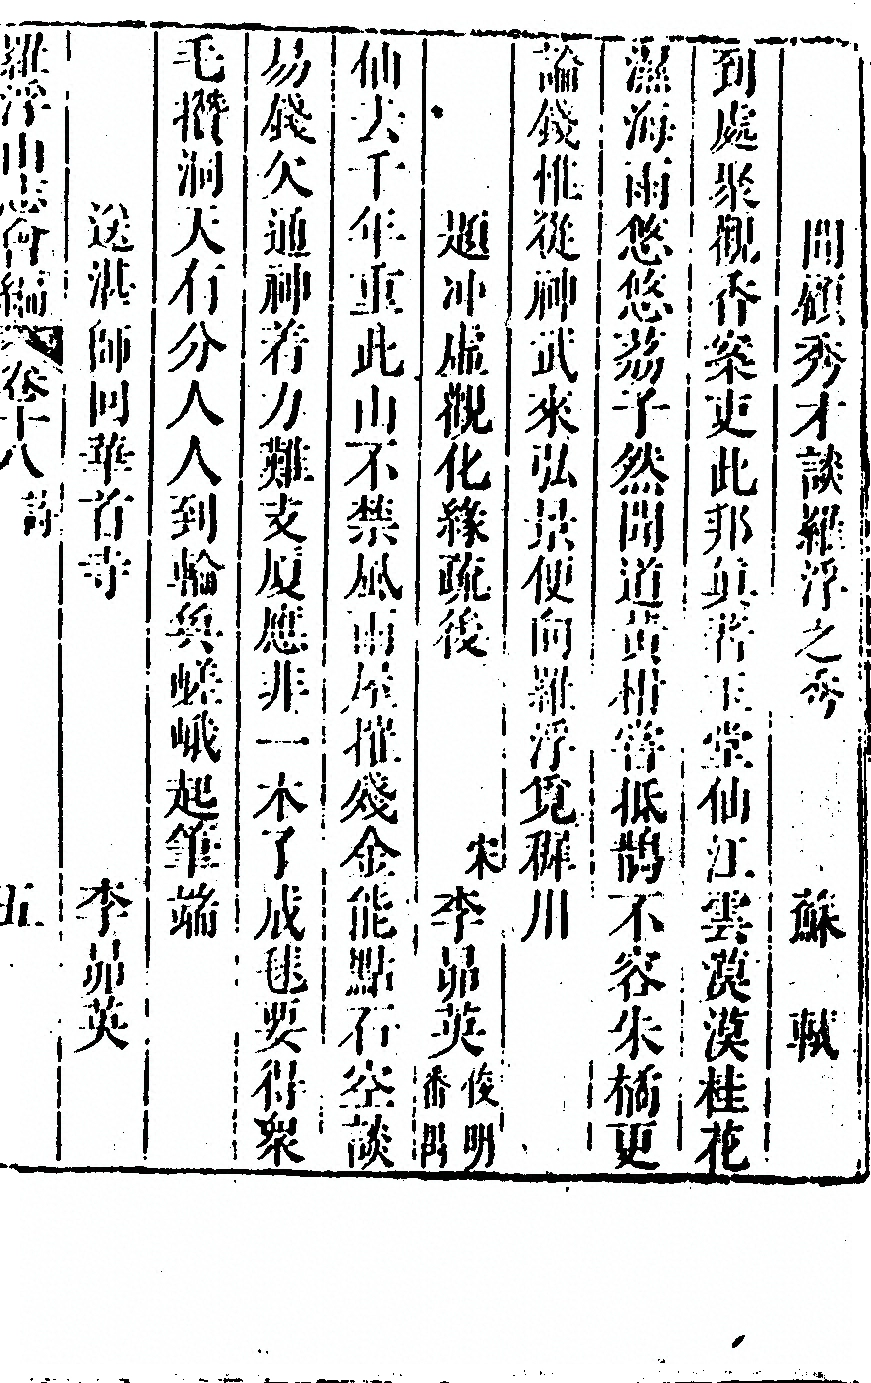 問顧秀才談羅浮之秀 蘇軾
到處聚觀香案吏此邦宜著玉堂仙江雲漠漠桂花
濕海雨悠悠荔子然聞道黃柑嘗抵鵲不容朱橘更
論錢惟從神武來弘景便向羅浮覓稚川
題冲虛觀化緣疏後 宋李昴英俊明番禺
仙去千年重此山不禁風雨屋摧殘金能點石空談
易錢欠通神着力難支廈應非一木了成毬要得衆
毛攢洞天有分人人到輪奐嵯峨起筆端
送湛師回華首寺 李昴英
羅浮山志會編 卷十八 詩 五